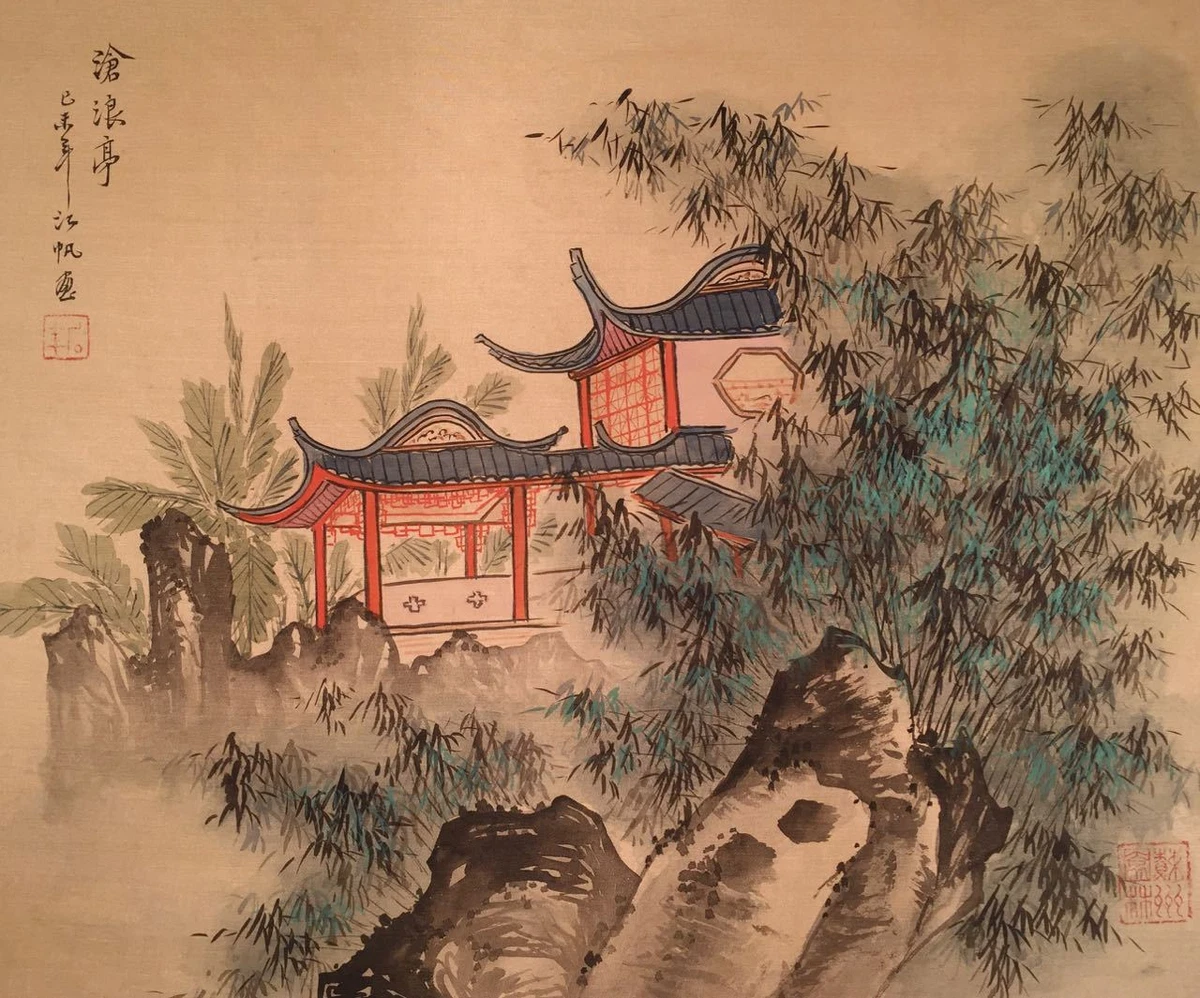 滄浪亭
己未年江帆画